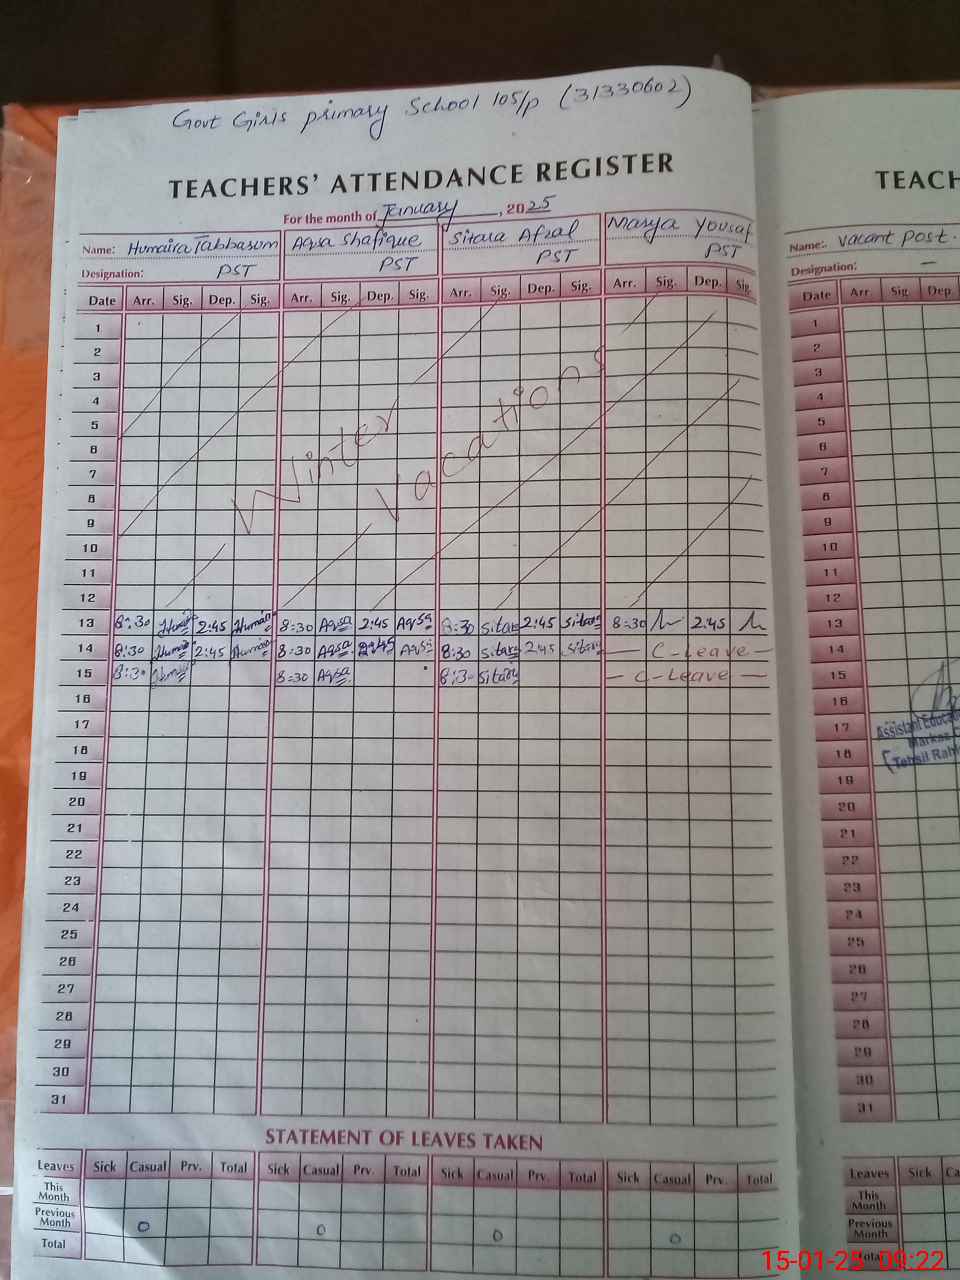 Govt Girls primary School 105/p (31330602)
TEACHERS' ATTENDANCE REGISTER
For the month of January, 2025
Name: Humaira Tabbasum Aqsa Shafique Sitara Afzal Marya Yousaf
Designation: PST PST PST PST
Date Arr. Sig. Dep. Sig. Arr. Sig. Dep. Sig. Arr. Sig. Dep. Sig. Arr. Sig. Dep. Sig.
1
2
3
4
5
6
7
8
9
10
11
12
Winter Vacations
13 8:30 Humaira 2:45 Humaira 8:30 Aqsa 2:45 Aqsa 8:30 Sitara 2:45 Sitara 8:30 2:45
14 8:30 Humaira 2:45 Humaira 8:30 Aqsa 2:45 Aqsa 8:30 Sitara 2:45 Sitara — C-Leave —
15 8:30 Humaira 8:30 Aqsa 8:3- Sitara — C-Leave —
16
17
18
19
20
21
22
23
24
25
26
27
28
29
30
31
STATEMENT OF LEAVES TAKEN
Leaves Sick Casual Prv. Total Sick Casual Prv. Total Sick Casual Prv. Total Sick Casual Prv. Total
This Month
Previous Month 0 0 0 0
Total
TEACH
Name:. Vacant Post.
Designation: —
Date Arr. Sig Dep
1
2
3
4
5
6
7
8
9
10
11
12
13
14
15
16
17
Assistant Educati
Markaz
18
(Tehsil Rah
19
20
21
22
23
24
25
26
27
28
29
30
31
Leaves Sick Ca
This Month
Previous Month
Total
15-01-25 09:22